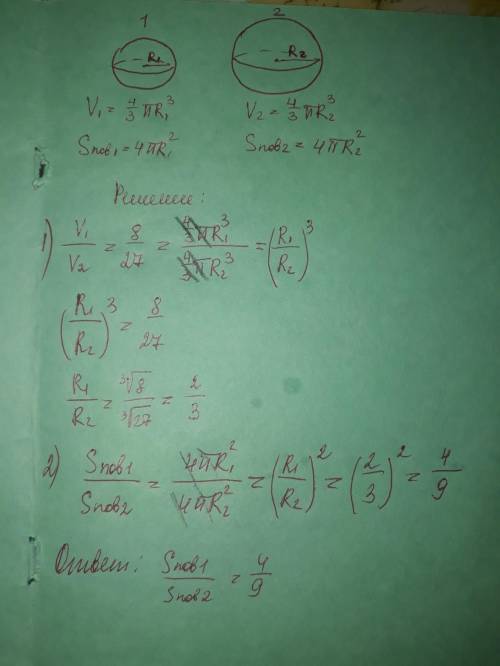 1 2
R₁ R₂
V₁ = 4/3 πR₁³ V₂ = 4/3 πR₂³
Sпов₁ = 4πR₁² Sпов₂ = 4πR₂²
Решение:
1) V₁/V₂ = 8/27 = (4/3 πR₁³)/(4/3 πR₂³) = (R₁/R₂)³
(R₁/R₂)³ = 8/27
R₁/R₂ = ³√8/³√27 = 2/3
2) Sпов1/Sпов2 = 4πR₁²/4πR₂² = (R₁/R₂)² = (2/3)² = 4/9
Ответ: Sпов1/Sпов2 = 4/9